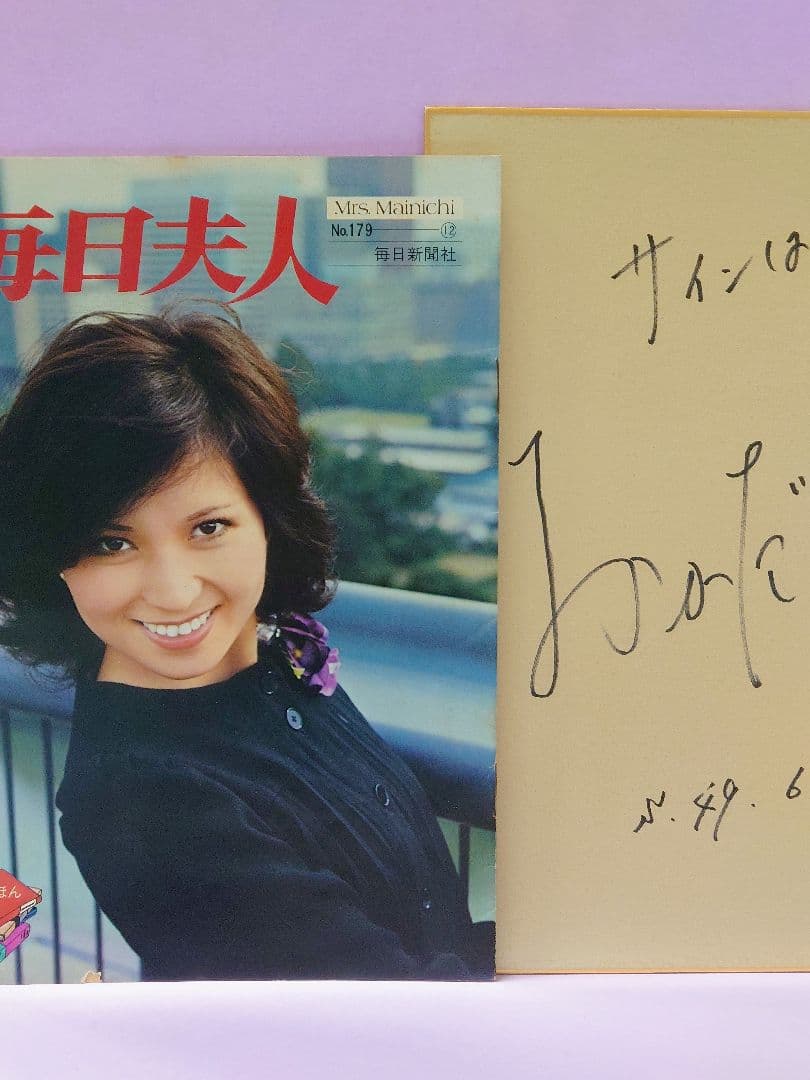 毎日夫人
Mrs. Mainichi
No.179 ⑫
毎日新聞社
ほん
サインは
おかだ
S. 49. 6